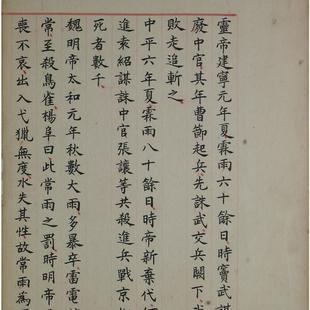 靈帝建寧元年夏霖雨六十餘日時竇武謀
廢中官其年曹節起兵先誅武交兵闕下
敗走追斬之
中平六年夏霖雨八十餘日時帝新棄代
進乘紹謀誅中官張讓等共殺進兵戰京
死者數千
魏明帝太和元年秋數大雨多暴卒雷電
常至殺鳥雀楊阜曰此常雨之罰時明帝
喪不哀出入弋獵無度水失其性故常雨爲